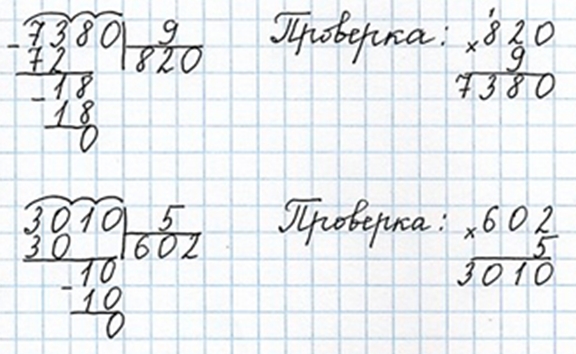 -7380 | 9 Проверка: ×820
72 | 820 9
-18 7380
18
0
3010 | 5 Проверка: ×602
30 | 602 5
-10 3010
10
0